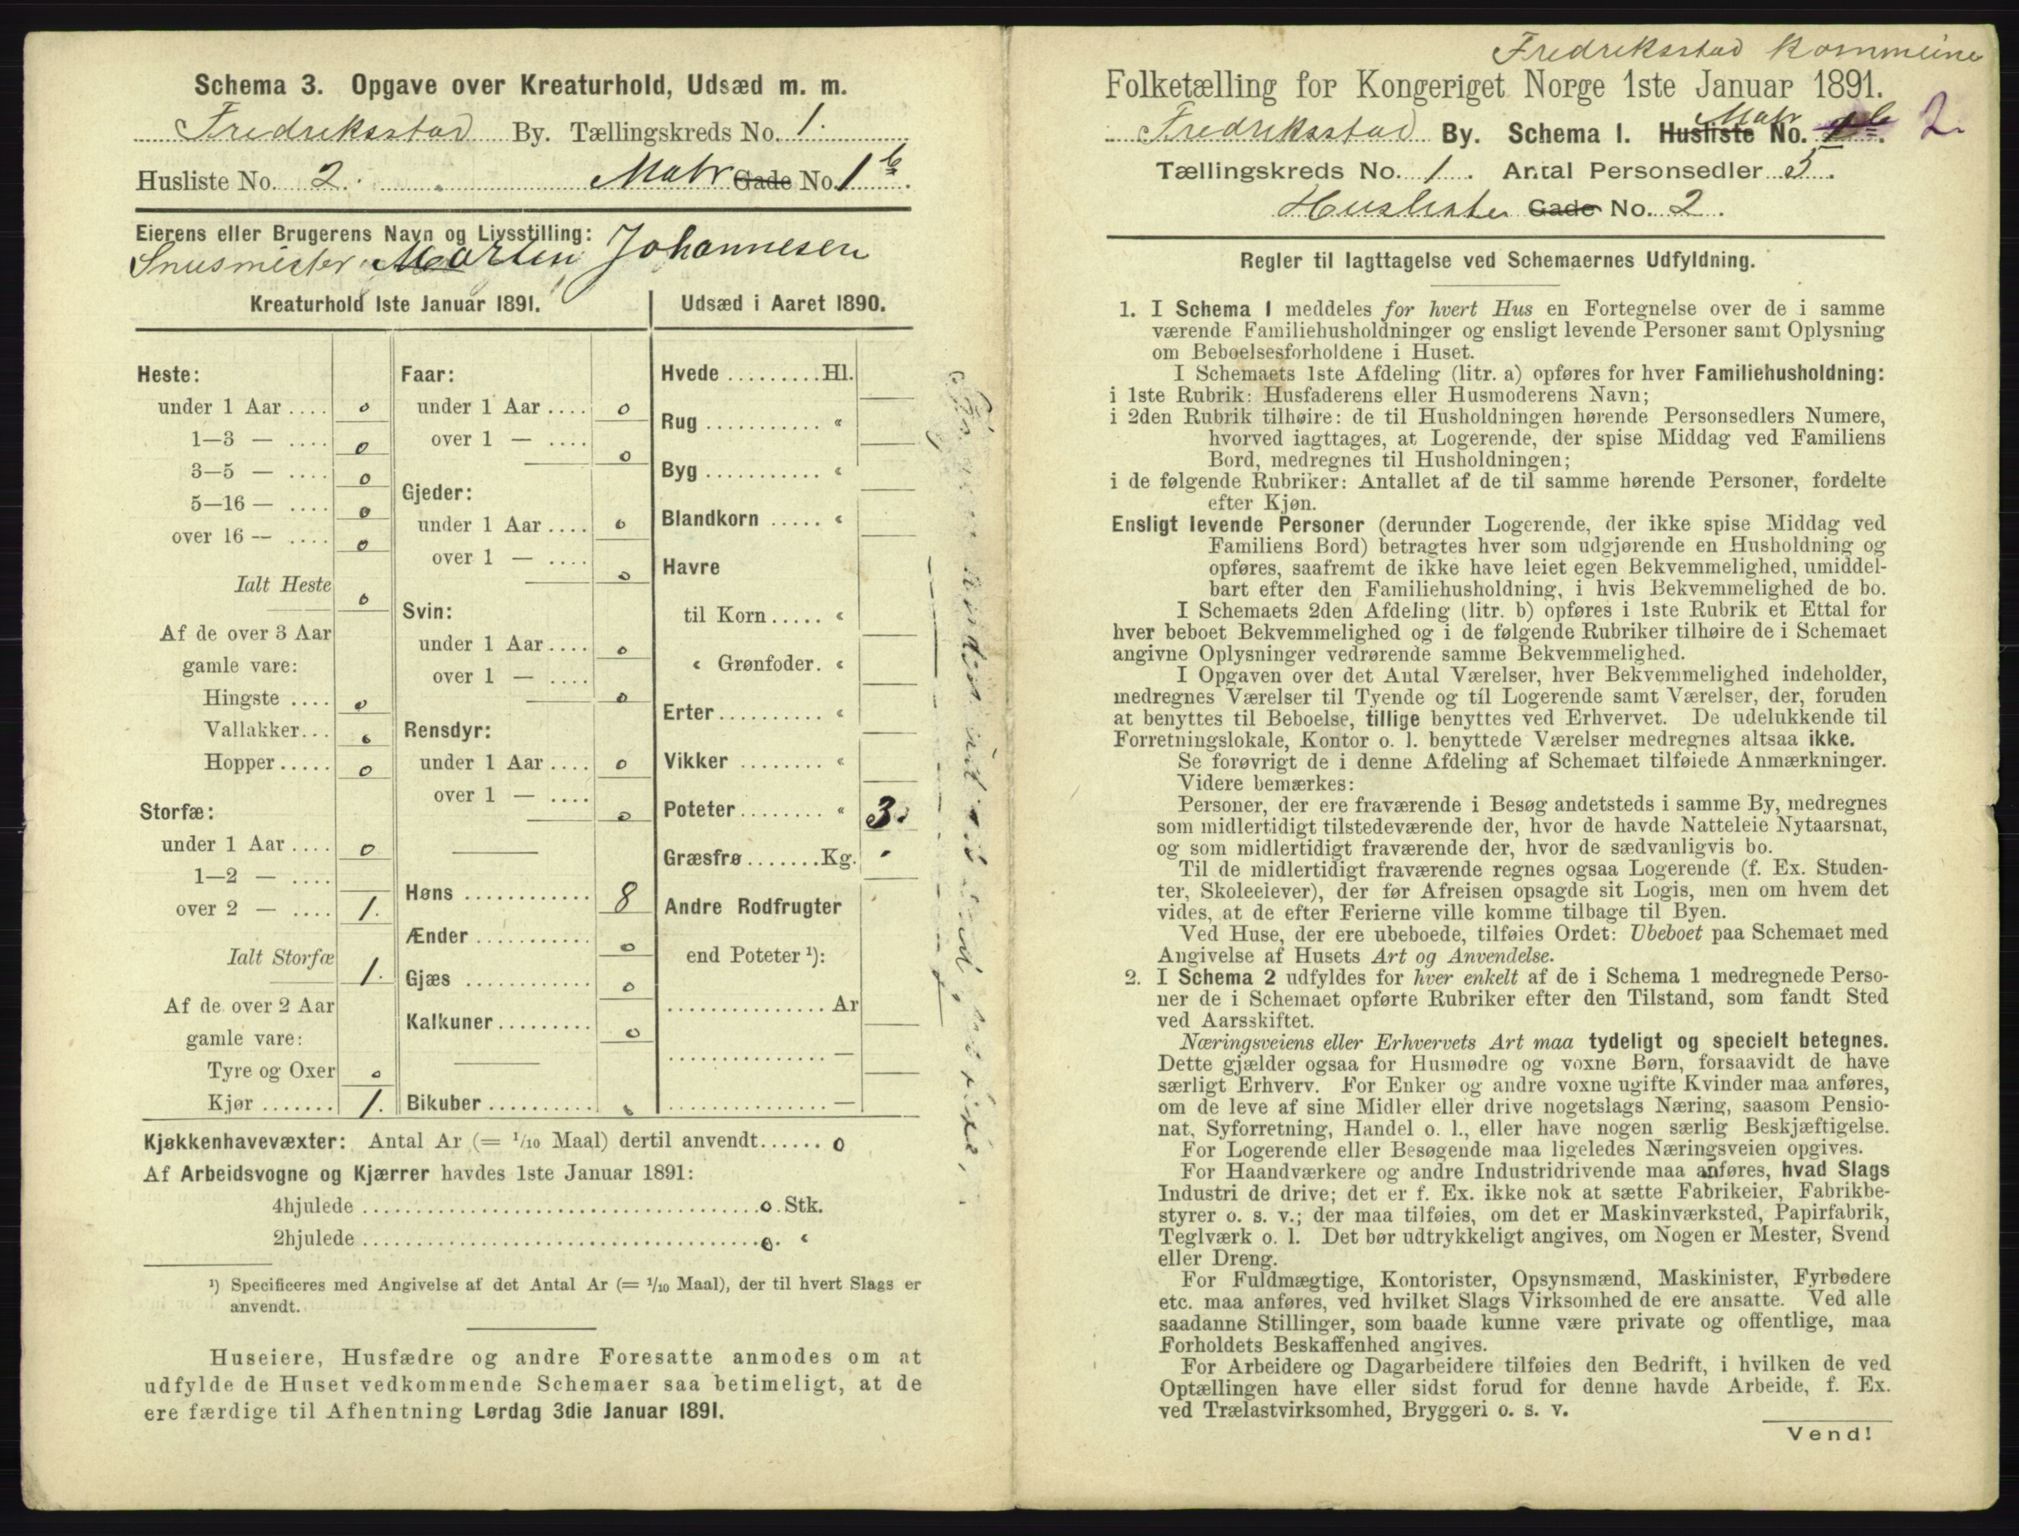 Schema 3. Opgave over Kreaturhold, Udsæd m. m.
Fredriksstad By. Tællingskreds No. 1.
Husliste No. 2. Matr Gade No. 1 b
Eierens eller Brugerens Navn og Livsstilling:
Snusmester Martin Johannesen
Kreaturhold 1ste Januar 1891.
Heste:
under 1 Aar .... 0
1—3 — .... 0
3—5 — .... 0
5—16 — .... 0
over 16 — .... 0
Ialt Heste 0
Af de over 3 Aar
gamle vare:
Hingste .... 0
Vallakker... 0
Hopper..... 0
Storfæ:
under 1 Aar .... 0
1—2 — ....
over 2 — .... 1.
Ialt Storfæ 1.
Af de over 2 Aar
gamle vare:
Tyre og Oxer 0
Kjør ....... 1.
Faar:
under 1 Aar .... 0
over 1 — .... 0
Gjeder:
under 1 Aar .... 0
over 1 — .... 0
Svin:
under 1 Aar .... 0
over 1 — .... 0
Rensdyr:
under 1 Aar .... 0
over 1 — .... 0
Høns ............ 8
Ænder ........... 0
Gjæs ............ 0
Kalkuner......... 0
Bikuber .......... 0
Udsæd i Aaret 1890.
Hvede .........Hl.
Rug ........... "
Byg ........... "
Blandkorn ..... "
Havre
til Korn ..... "
" Grønfoder. "
Erter.......... "
Vikker ........ "
Poteter........ " 3.
Græsfrø .......Kg.
Andre Rodfrugter
end Poteter ¹):
............... Ar
............... —
............... —
Kjøkkenhavevæxter: Antal Ar (= 1/10 Maal) dertil anvendt...... 0
Af Arbeidsvogne og Kjærrer havdes 1ste Januar 1891:
4hjulede ........ 0. Stk.
2hjulede ........ 0. "
¹) Specificeres med Angivelse af det Antal Ar (= 1/10 Maal), der til hvert Slags er
anvendt.
Huseiere, Husfædre og andre Foresatte anmodes om at
udfylde de Huset vedkommende Schemaer saa betimeligt, at de
ere færdige til Afhentning Lørdag 3die Januar 1891.
Fredriksstad Kommeune
Folketælling for Kongeriget Norge 1ste Januar 1891.
Fredriksstad By. Schema I. Husliste Matr No. 1 b 2.
Tællingskreds No. 1. Antal Personsedler 5.
Husliste Gade No. 2.
Regler til Iagttagelse ved Schemaernes Udfyldning.
1. I Schema I meddeles for hvert Hus en Fortegnelse over de i samme
værende Familiehusholdninger og ensligt levende Personer samt Oplysning
om Beboelsesforholdene i Huset.
I Schemaets 1ste Afdeling (litr. a) opføres for hver Familiehusholdning:
i 1ste Rubrik: Husfaderens eller Husmoderens Navn;
i 2den Rubrik tilhøire: de til Husholdningen hørende Personsedlers Numere,
hvorved iagttages, at Logerende, der spise Middag ved Familiens
Bord, medregnes til Husholdningen;
i de følgende Rubriker: Antallet af de til samme hørende Personer, fordelte
efter Kjøn.
Ensligt levende Personer (derunder Logerende, der ikke spise Middag ved
Familiens Bord) betragtes hver som udgjørende en Husholdning og
opføres, saafremt de ikke have leiet egen Bekvemmelighed, umiddel-
bart efter den Familiehusholdning, i hvis Bekvemmelighed de bo.
I Schemaets 2den Afdeling (litr. b) opføres i 1ste Rubrik et Ettal for
hver beboet Bekvemmelighed og i de følgende Rubriker tilhøire de i Schemaet
angivne Oplysninger vedrørende samme Bekvemmelighed.
I Opgaven over det Antal Værelser, hver Bekvemmelighed indeholder,
medregnes Værelser til Tyende og til Logerende samt Værelser, der, foruden
at benyttes til Beboelse, tillige benyttes ved Erhvervet. De udelukkende til
Forretningslokale, Kontor o. l. benyttede Værelser medregnes altsaa ikke.
Se forøvrigt de i denne Afdeling af Schemaet tilføiede Anmærkninger.
Videre bemærkes:
Personer, der ere fraværende i Besøg andetsteds i samme By, medregnes
som midlertidigt tilstedeværende der, hvor de havde Natteleie Nytaarsnat,
og som midlertidigt fraværende der, hvor de sædvanligvis bo.
Til de midlertidigt fraværende regnes ogsaa Logerende (f. Ex. Studen-
ter, Skoleelever), der før Afreisen opsagde sit Logis, men om hvem det
vides, at de efter Ferierne ville komme tilbage til Byen.
Ved Huse, der ere ubeboede, tilføies Ordet: Ubeboet paa Schemaet med
Angivelse af Husets Art og Anvendelse.
2. I Schema 2 udfyldes for hver enkelt af de i Schema 1 medregnede Perso-
ner de i Schemaet opførte Rubriker efter den Tilstand, som fandt Sted
ved Aarsskiftet.
Næringsveiens eller Erhvervets Art maa tydeligt og specielt betegnes.
Dette gjælder ogsaa for Husmødre og voxne Børn, forsaavidt de have
særligt Erhverv. For Enker og andre voxne ugifte Kvinder maa anføres,
om de leve af sine Midler eller drive nogetslags Næring, saasom Pensio-
nat, Syforretning, Handel o. l., eller have nogen særlig Beskjæftigelse.
For Logerende eller Besøgende maa ligeledes Næringsveien opgives.
For Haandværkere og andre Industridrivende maa anføres, hvad Slags
Industri de drive; det er f. Ex. ikke nok at sætte Fabrikeier, Fabrikbe-
styrer o. s. v.; der maa tilføies, om det er Maskinværksted, Papirfabrik,
Teglværk o. l. Det bør udtrykkeligt angives, om Nogen er Mester, Svend
eller Dreng.
For Fuldmægtige, Kontorister, Opsynsmænd, Maskinister, Fyrbødere
etc. maa anføres, ved hvilket Slags Virksomhed de ere ansatte. Ved alle
saadanne Stillinger, som baade kunne være private og offentlige, maa
Forholdets Beskaffenhed angives.
For Arbeidere og Dagarbeidere tilføies den Bedrift, i hvilken de ved
Optællingen have eller sidst forud for denne havde Arbeide, f. Ex.
ved Trælastvirksomhed, Bryggeri o. s. v.
Vend!